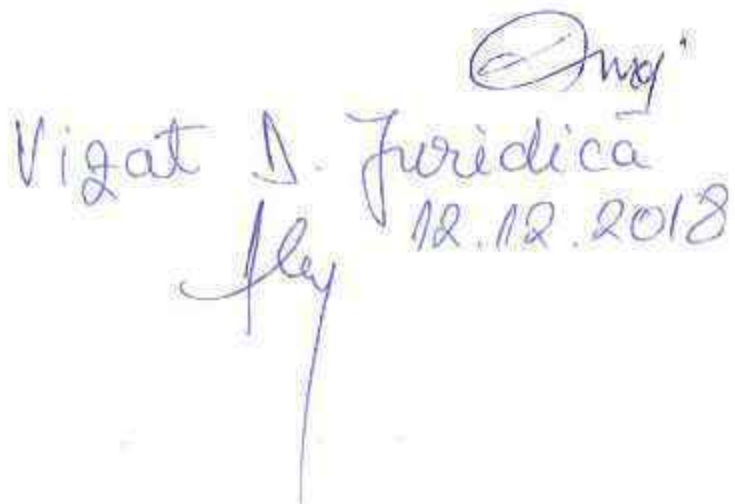 Vizat D. Juridică
12.12.2018